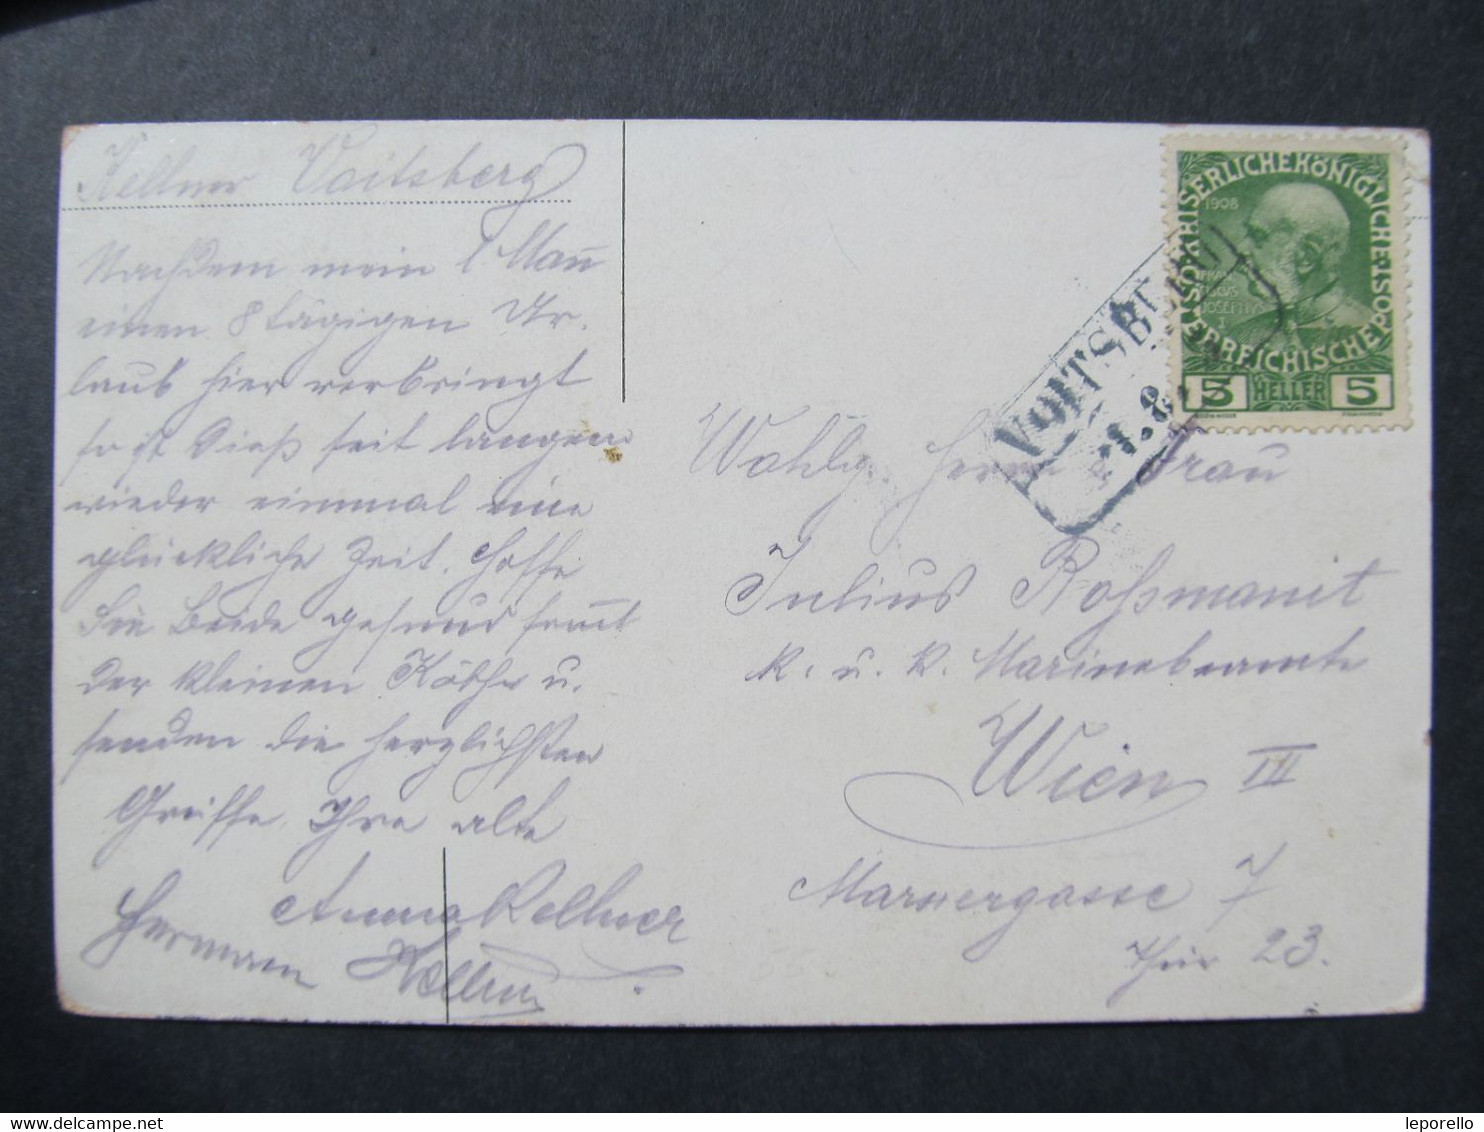 Kellner Voitsberg
Nachdem mein l. Mañ
einen 8 tägigen Ur-
laub hier verbringt
so ist dieß seit langem
wieder einmal eine
glückliche Zeit. Hoffe
Sie Beide gesund sam̅t
der kleinen u.
senden die herzlichsten
Grüsse, Ihre alte
Anna Kellner
Hermann Kellner
VOITSBERG
21.8.
KAISERLICHE KÖNIGLICHE ÖSTERREICHISCHE POST
1908
JOSEPH
I
5 HELLER 5
Wohlg. Herrn & Frau
Julius Roßmanit
k. u. k. Marinebeamte
Wien III
Marxergasse 7
Thür 23.
leporello